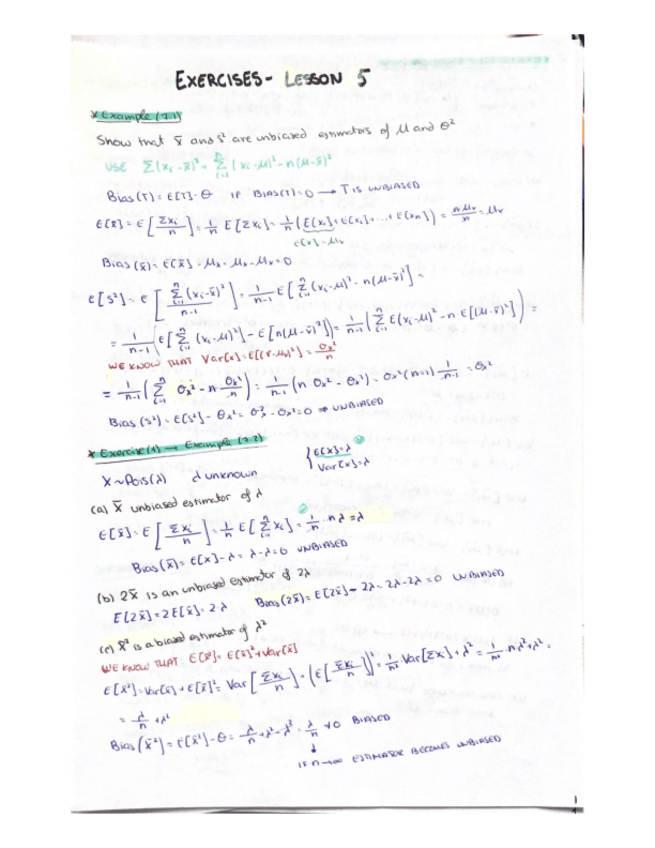 EXERCISES - LESSON 5
* Example (7.1)
Show that x̄ and s² are unbiased estimators of μ and σ²
USE Σ(xi - x̄)² = Σ(xi - μ)² - n(μ - x̄)²
Bias(T) = E[T] - θ IF BIAS(T) = 0 → T IS UNBIASED
E[x̄] = E[Σxi/n] = 1/n E[Σxi] = 1/n (E[x1] + E[x2] + ... + E[xn]) = nμx/n = μx
E[x] = μx
Bias(x̄) = E[x̄] - μx = μx - μx = 0
E[s²] = E[Σ(xi - x̄)²/n-1] = 1/n-1 E[Σ(xi - μ)² - n(μ - x̄)²] =
= 1/n-1 (E[Σ(xi - μ)²] - E[n(μ - x̄)²]) = 1/n-1 (Σ E(xi - μ)² - n E[(μ - x̄)²]) =
WE KNOW THAT Var(x̄) = E[(x̄ - μx)²] = σx²/n
= 1/n-1 (Σ σx² - n σx²/n) = 1/n-1 (n σx² - σx²) = σx² (n-1) 1/n-1 = σx²
Bias(s²) = E[s²] - σx² = σx² - σx² = 0 ⇒ UNBIASED
* Exercise (1) → Example (7.2)
X ~ Pois(λ) λ unknown
{ E[x] = λ
Var[x] = λ
(a) X̄ unbiased estimator of λ
E[x̄] = E[Σxi/n] = 1/n E[Σxi] = 1/n · nλ = λ
Bias(x̄) = E[x] - λ = λ - λ = 0 UNBIASED
(b) 2x̄ is an unbiased estimator of 2λ
E[2x̄] = 2E[x̄] = 2·λ Bias(2x̄) = E[2x̄] - 2λ = 2λ - 2λ = 0 UNBIASED
(c) x̄² is a biased estimator of λ²
WE KNOW THAT E[x̄²] = E[x̄]² + Var[x̄]
E[x̄²] = Var[x̄] + E[x̄]² = Var[Σxi/n] + (E[Σxi/n])² = 1/n² Var[Σxi] + λ² = 1/n² · nλ + λ² =
= λ/n + λ²
Bias(x̄²) = E[x̄²] - θ = λ/n + λ² - λ² = λ/n ≠ 0 BIASED
↓
IF n→∞ ESTIMATOR BECOMES UNBIASED